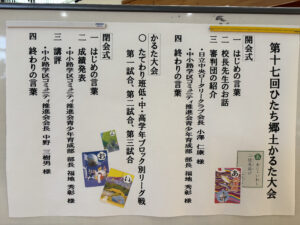 第十七回ひたち郷土かるた大会
開会式
一 はじめの言葉
二 校長先生のお話
三 審判団の紹介
・日立中央ロータリークラブ会長 小澤 仁康 様
・中小路学区コミュニティ推進会青少年育成部 部長 福地 秀彰 様
四 終わりの言葉
かるた大会
〇 たてわり班低・中・高学年ブロック別リーグ戦
第一試合、第二試合、第三試合
閉会式
一 はじめの言葉
二 成績発表
三 講評
・中小路学区コミュニティ推進会青少年育成部 部長 福地 秀彰 様
・中小路学区コミュニティ推進会会長 中野 三樹男 様
四 終わりの言葉
あ